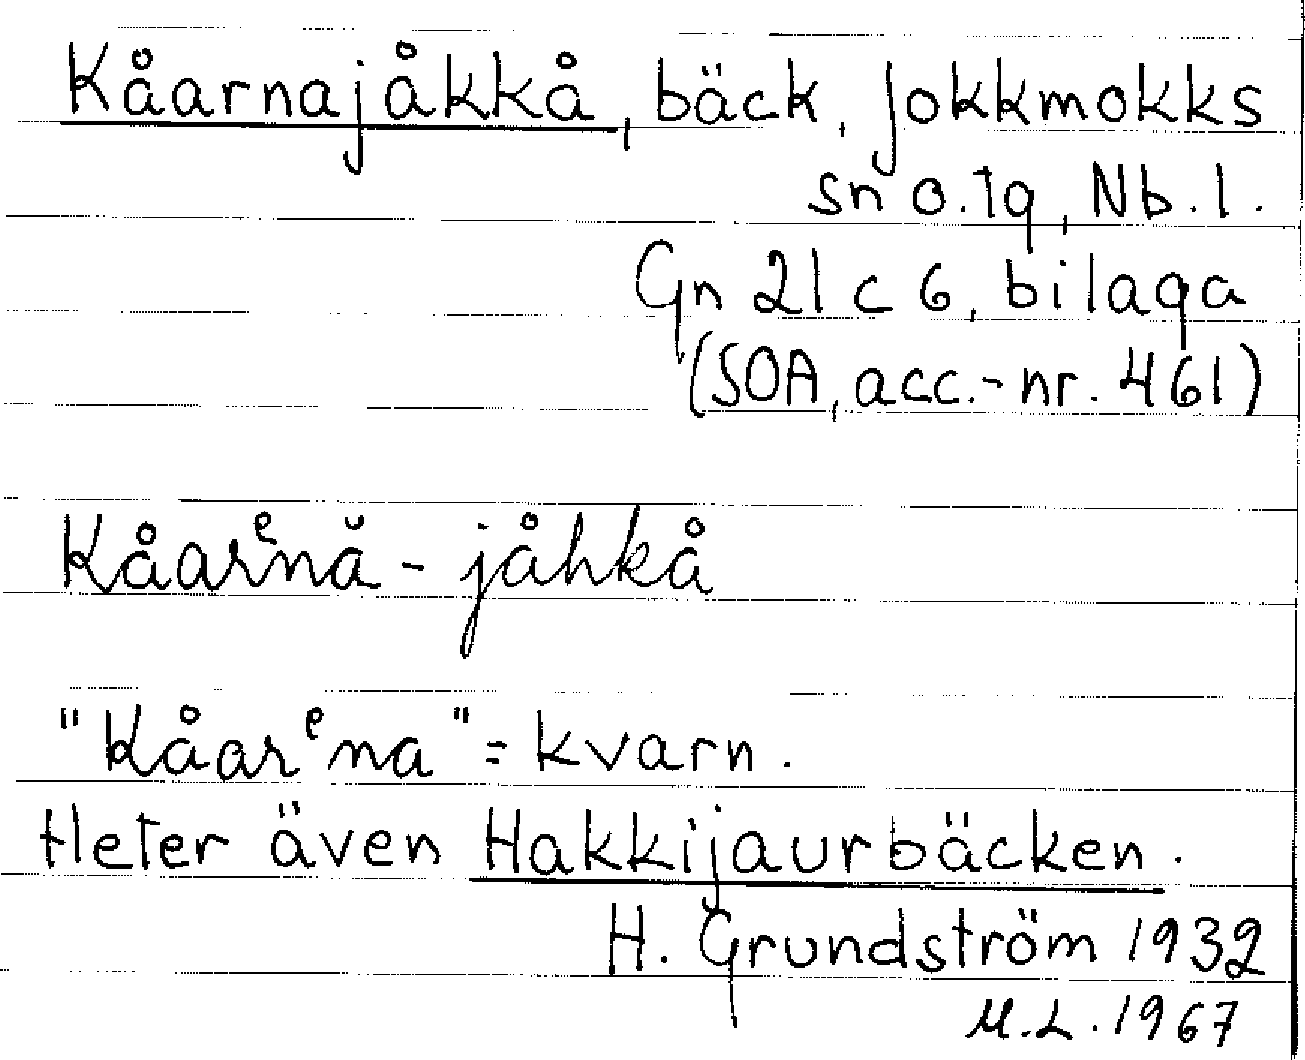 Kåarnajåkkå, bäck, Jokkmokks
sn o. lg, Nb. l.
Gn 21 c 6, bilaga
(SOA, acc.-nr. 461)
Kåarᵉnă - jåhkå
"kåarᵉna" = kvarn.
Heter även Hakkijaurbäcken.
H. Grundström 1932
M.L. 1967